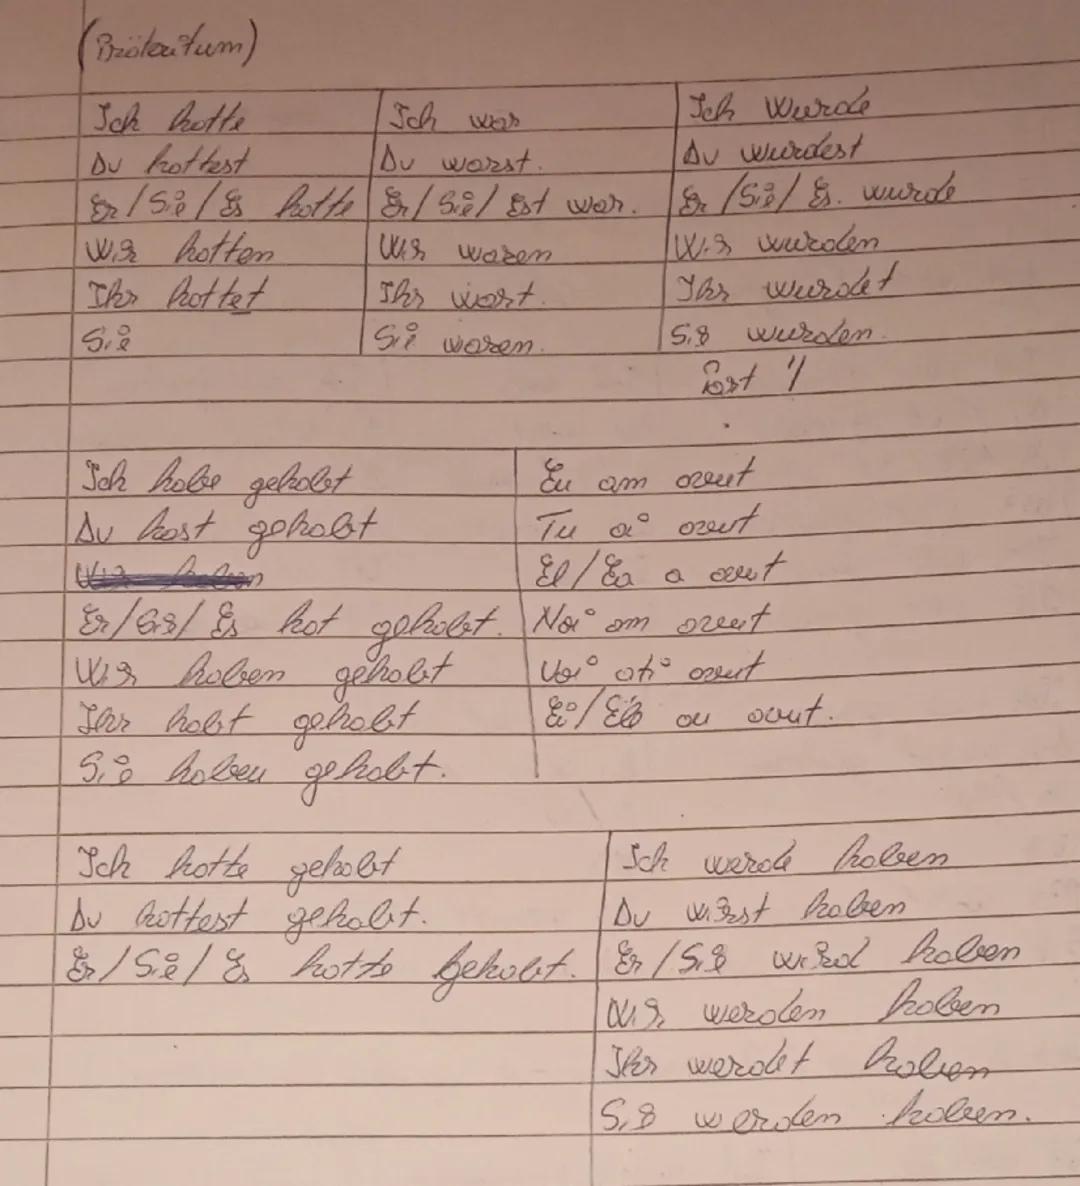 (Präteritum)
Ich hatte Ich war Ich wurde
Du hattest Du warst. Du wurdest
Er/Sie/Es hatte Er/Sie/Est war. Er/Sie/Es. wurde
Wir hatten Wir waren Wir wurden
Ihr hattet Ihr wart. Ihr wurdet
Sie Sie waren. Sie wurden.
Ich habe gehabt Eu am avut
Du hast gehabt Tu ai avut
El/Ea a avut
Er/Sie/Es hat gehabt. Noi am avut
Wir haben gehabt Voi ați avut
Ihr habt gehabt Ei/Ele au avut.
Sie haben gehabt.
Ich hatte gehabt Ich werde haben
Du hattest gehabt. Du wirst haben
Er/Sie/Es hatte gehabt. Er/Sie wird haben
Wir werden haben
Ihr werdet haben
Sie werden haben.